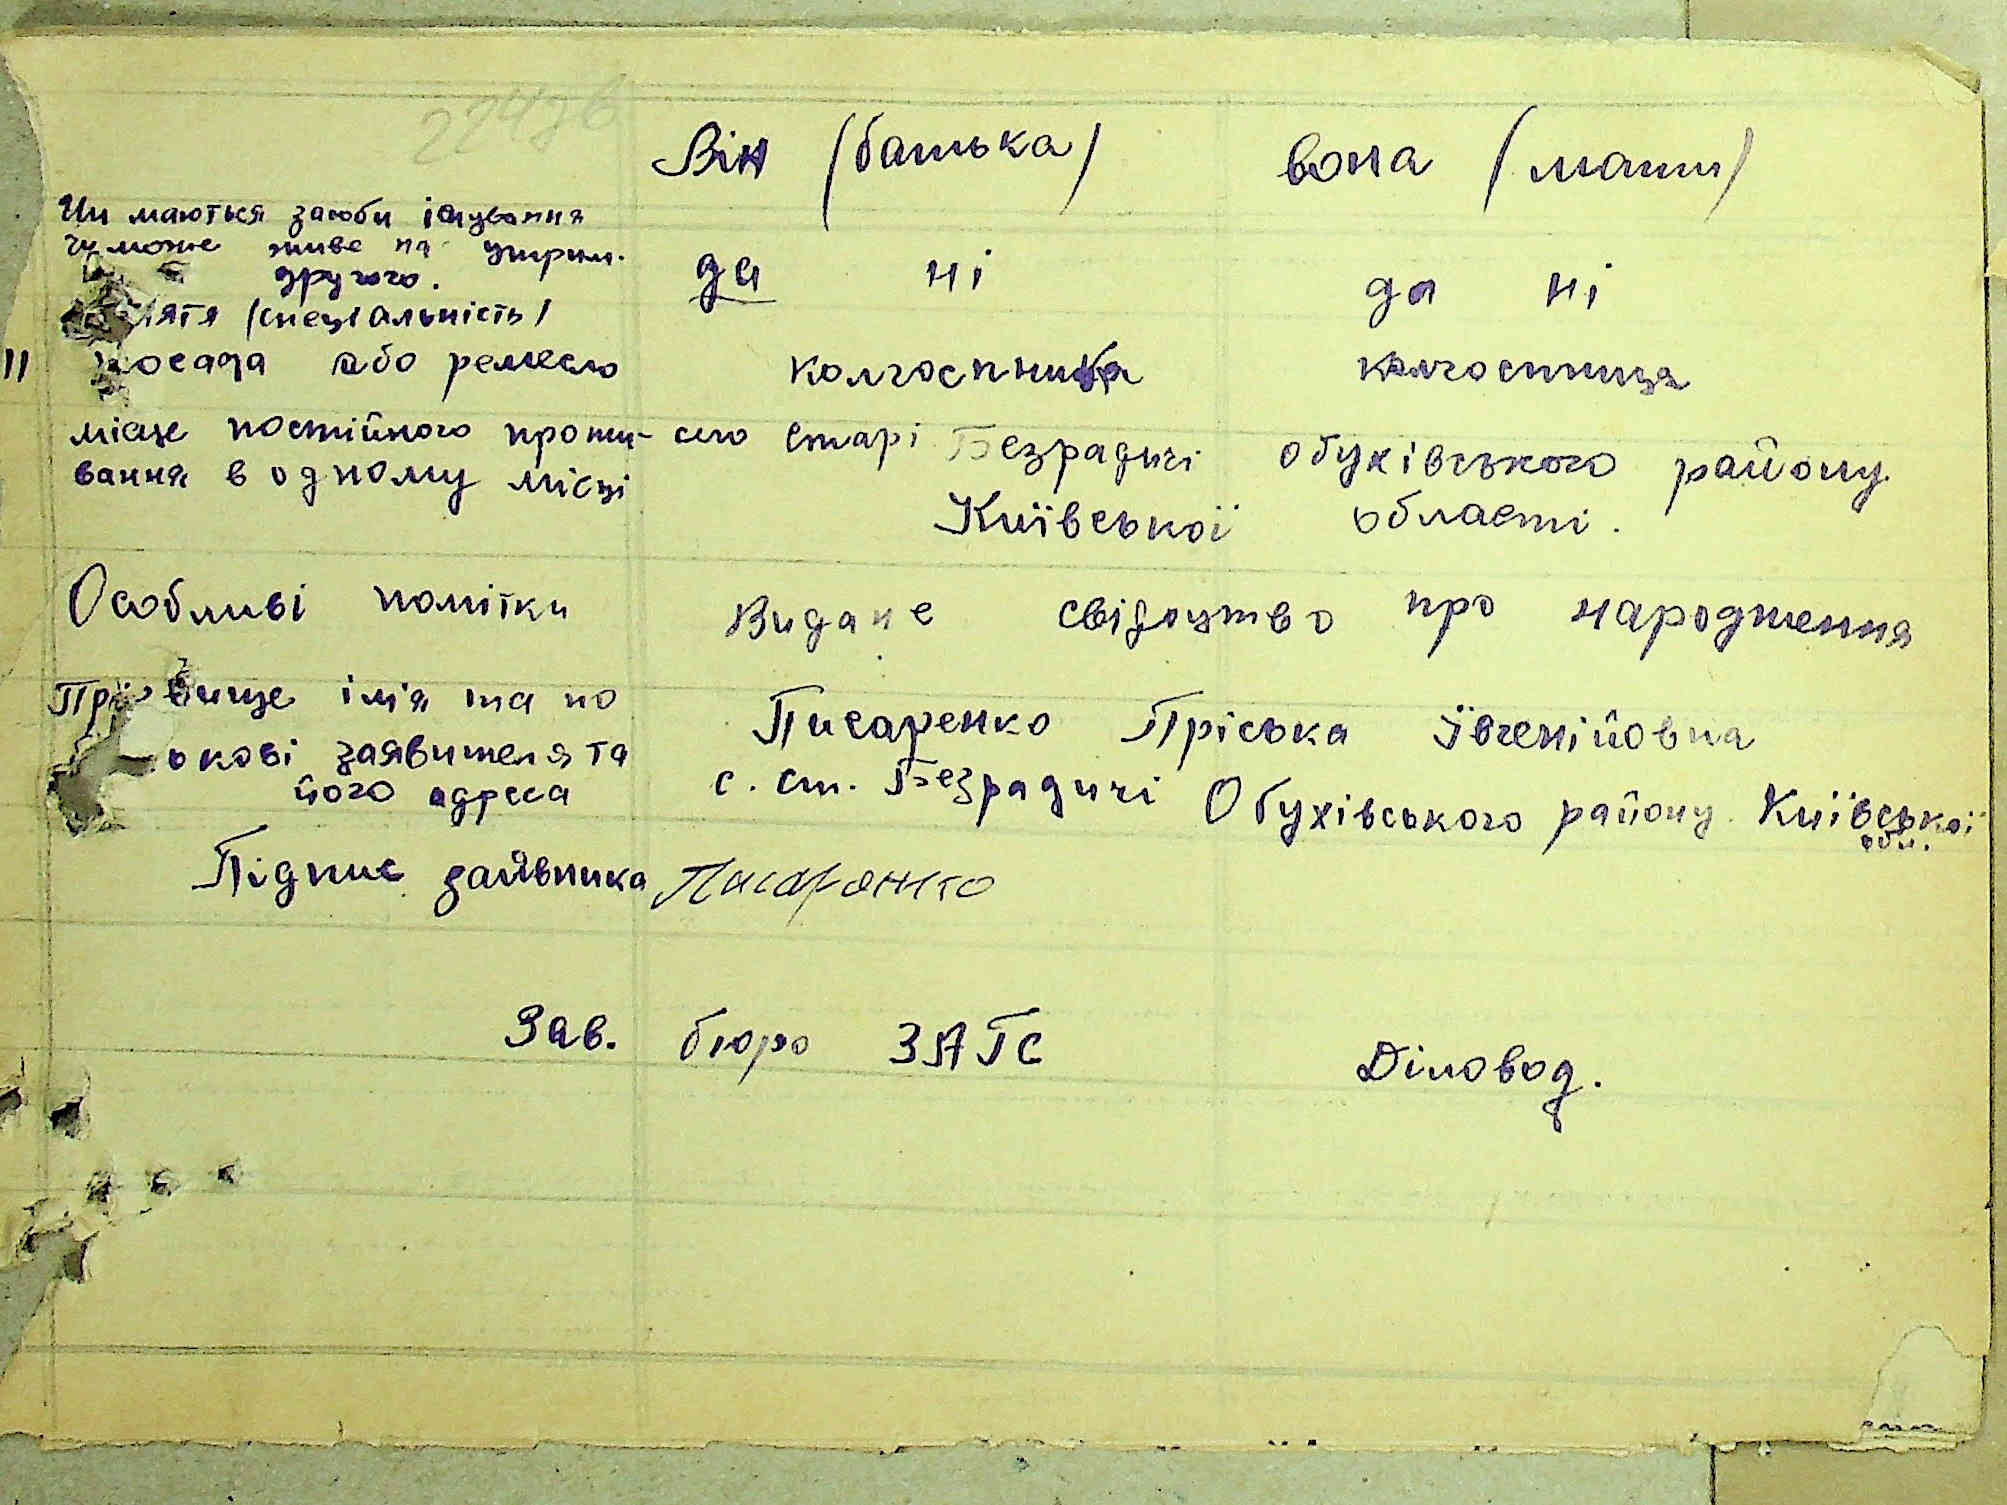 224зв
Він (батька) вона (мати)
Чи маються засоби існування
чи може живе на утрим.
другого. да ні да ні
ятя (спеціальність)
11 посада або ремесло колгоспника колгоспниця
місце постійного прожи- село старі Безрадичі обухівського району
вання в одному місці Київської області.
Особливі помітки Видане свідоцтво про народження
Прізвище імʼя та по Писаренко Пріська Ївгенійовна
ькові заявителя та с. ст. Безрадичі Обухівського району Київської
його адреса обл.
Підпис заявника Писаренко
Зав. бюро ЗАГС Діловод.